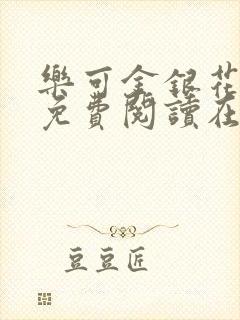 樂可金銀花
免費閱讀在
豆豆匠